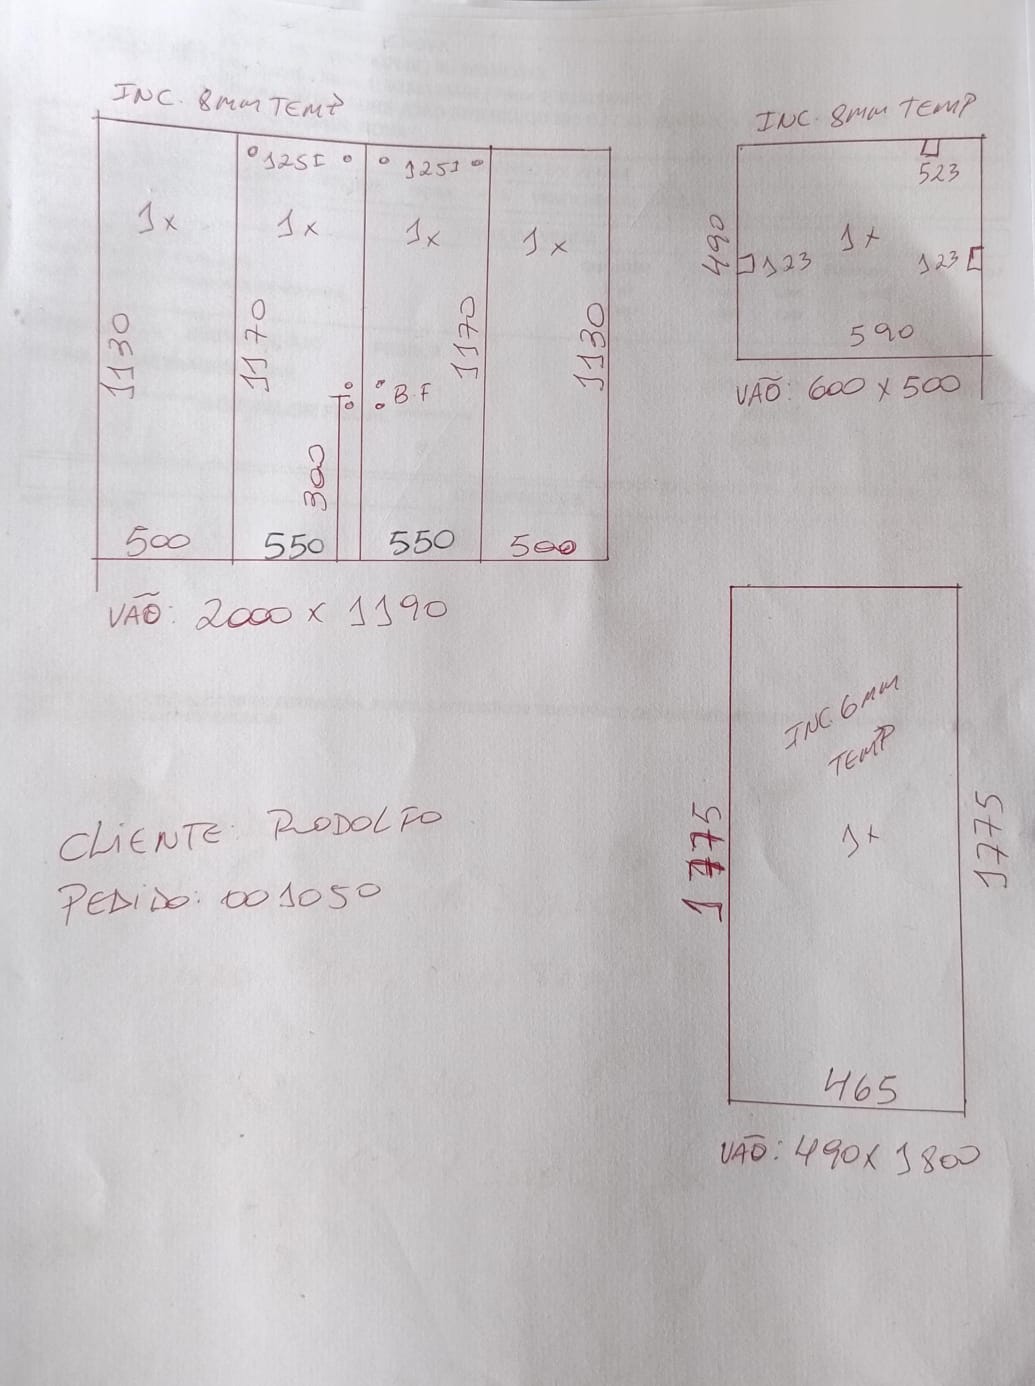 INC. 8mm TEMP
1251
1251
1x
1x
1x
1x
1130
1170
1170
1130
B.F
300
500
550
550
500
VÃO: 2000 x 1190
INC. 8mm TEMP
523
490
1x
123
123
590
VÃO: 600 x 500
INC. 6mm
TEMP
1x
1775
1775
465
VÃO: 490 x 1800
CLIENTE: RODOLFO
PEDIDO: 001050